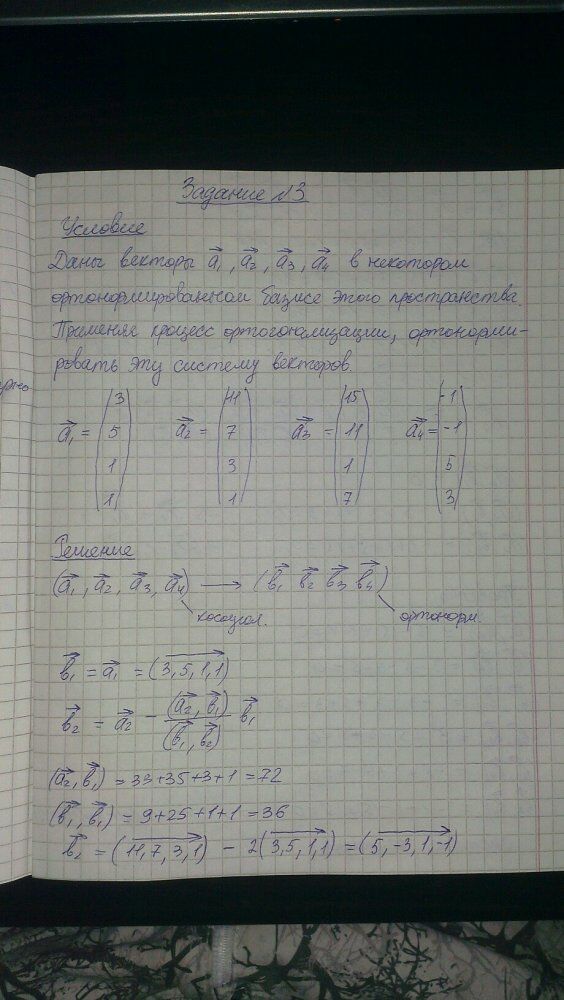 Задание №3
Условие
Даны векторы a₁, a₂, a₃, a₄ в некотором
ортонормированном базисе этого пространства.
Применяя процесс ортогонализации, ортонорми-
ровать эту систему векторов.
a₁ = (3 5 1 1) a₂ = (11 7 3 1) a₃ = (15 11 1 7) a₄ = (-1 -1 5 3)
Решение
(a₁, a₂, a₃, a₄) → (b₁ b₂ b₃ b₄)
косоугол. ортонорм.
b₁ = a₁ = (3,5,1,1)
b₂ = a₂ - (a₂, b₁)/(b₁, b₂) b₁
(a₂, b₁) = 33+35+3+1 = 72
(b₁, b₁) = 9+25+1+1 = 36
b₂ = (11,7,3,1) - 2(3,5,1,1) = (5,-3,1,-1)